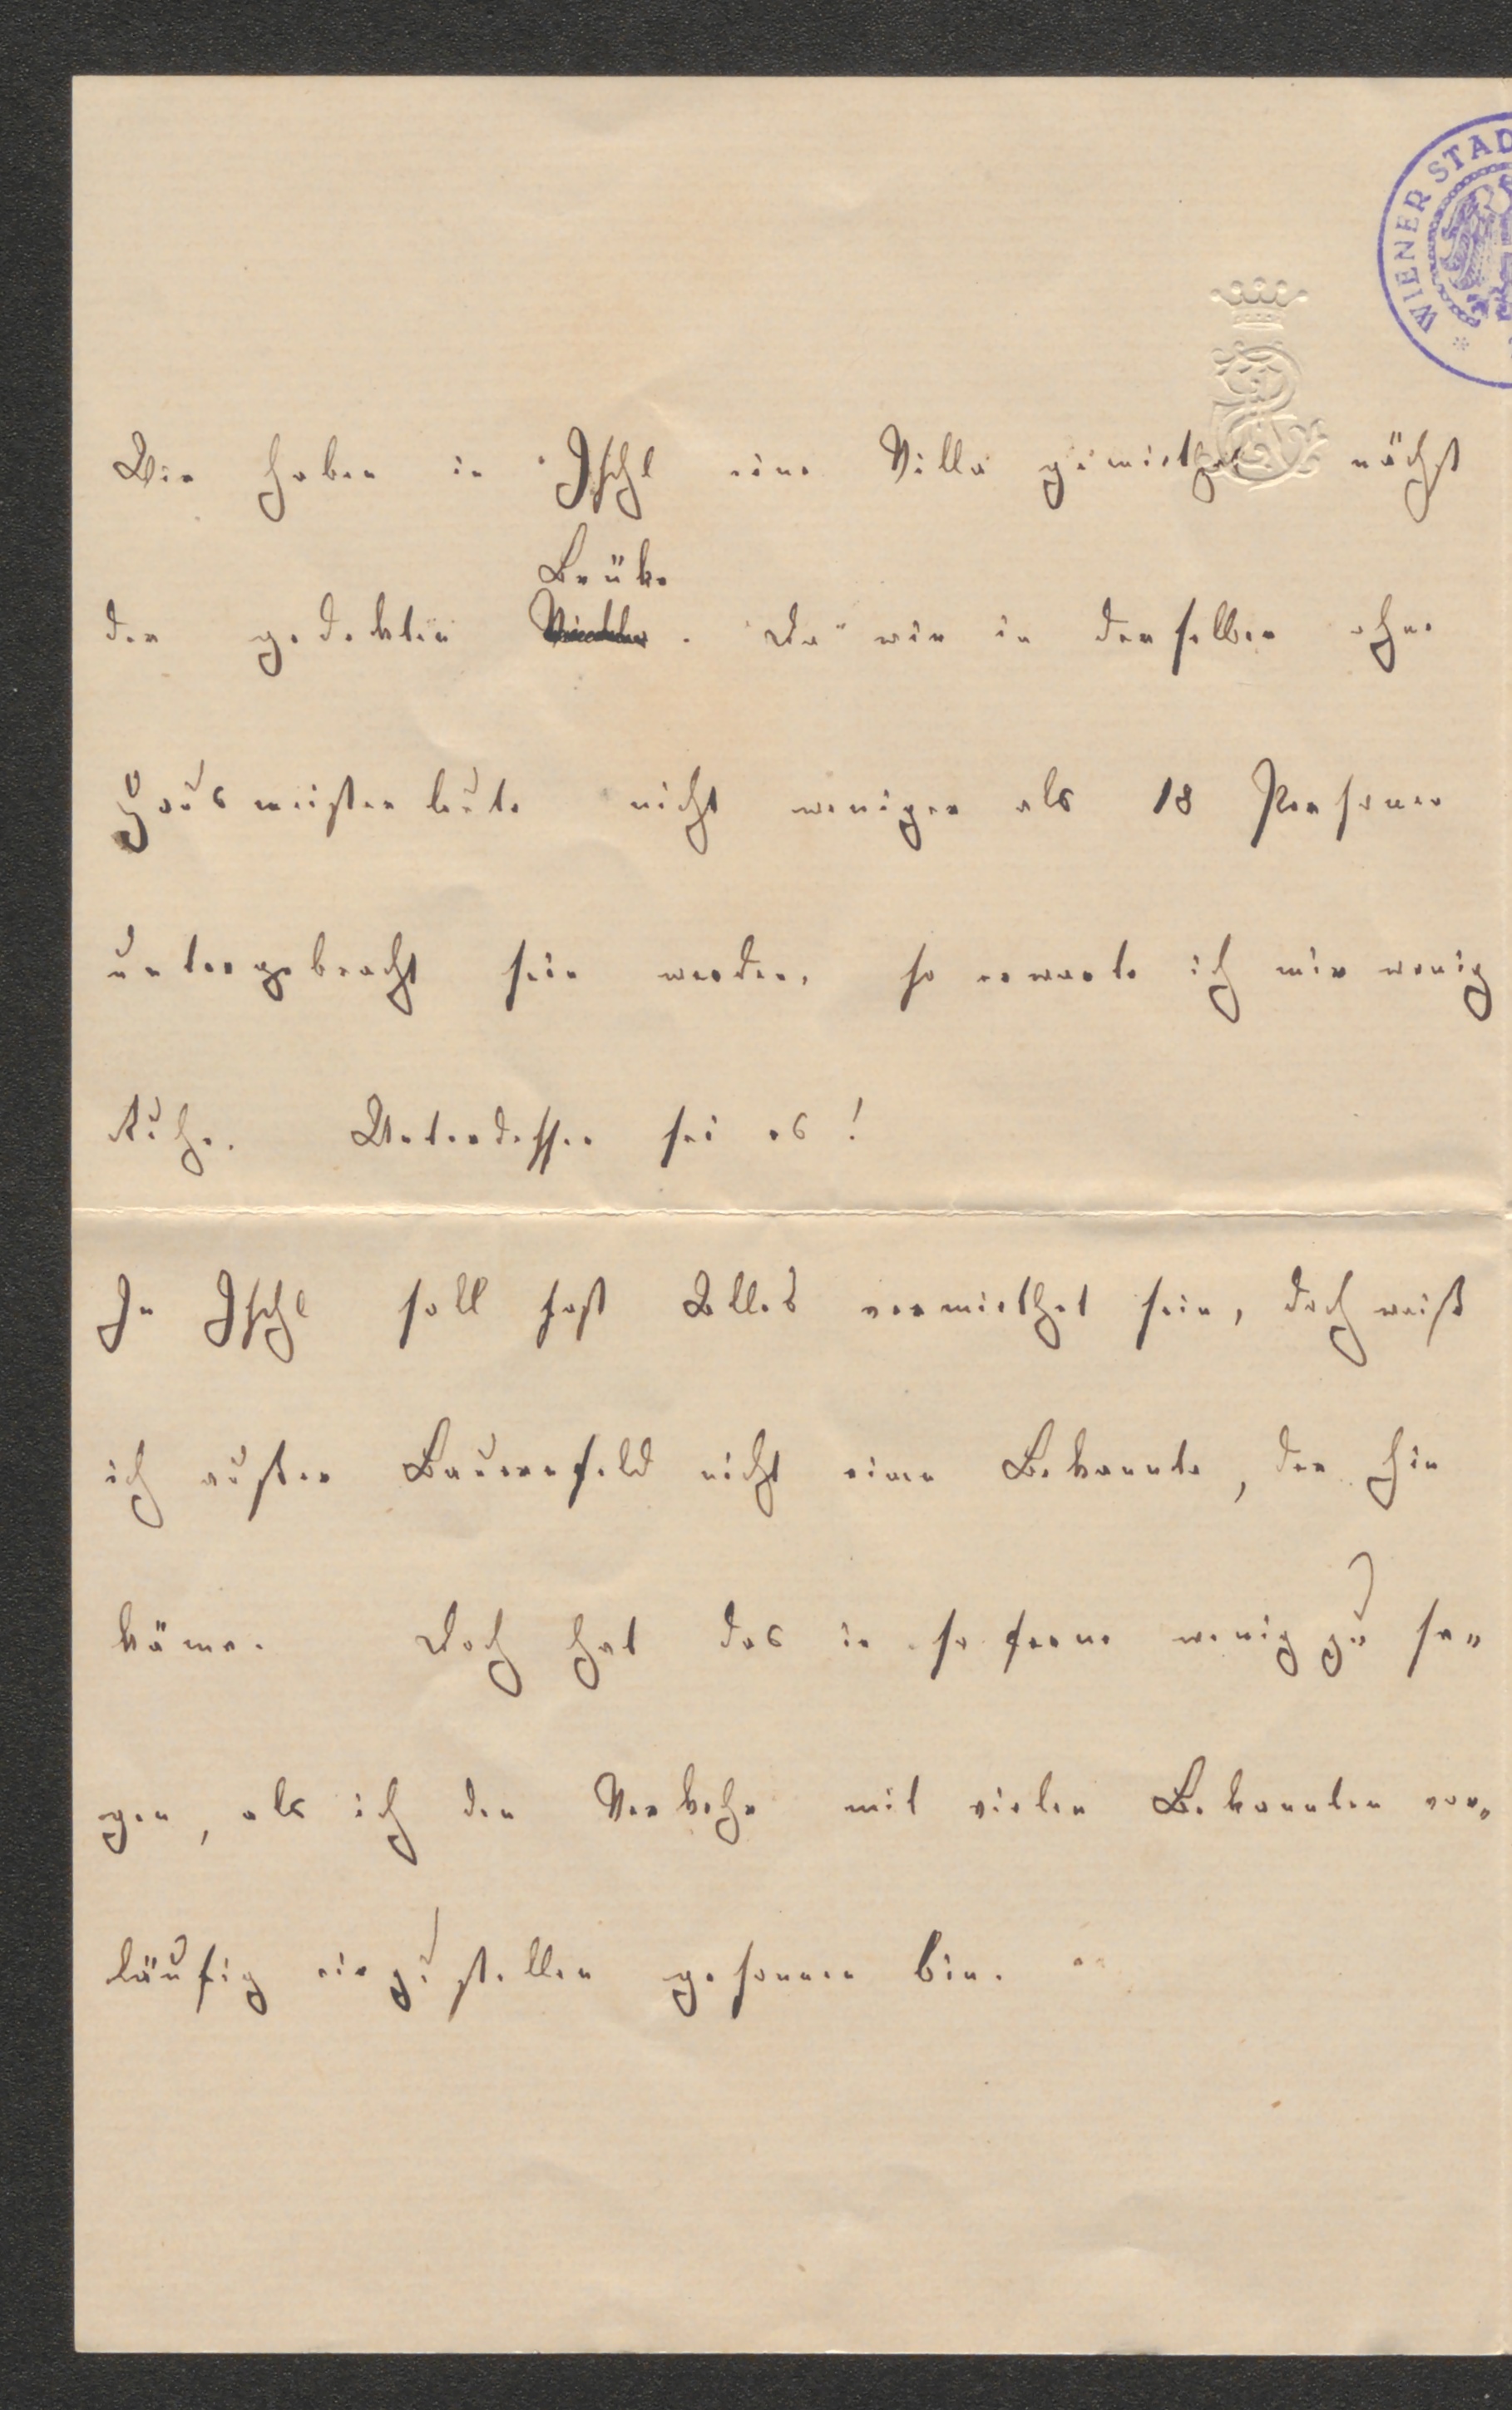 WIENER STAD
Wir haben in Ischl eine Villa gemiethet nächst
Brüke
der gedekten . Da wir in derselben ohne
Hausmeisterleute nicht weniger als 18 Personen
untergebracht sein werden, so erwarte ich mir wenig
Ruhe. Unterdessen sei es!
In Ischl soll fast Alles vermiethet sein, doch weiß
ich außer Bauernfeld nicht einen Bekannte, der hin
käme. Doch hat das in so ferne wenig zu sa„
gen, als ich den Verkehr mit vielen Bekannten vor„
läufig einzustellen gesonnen bin.